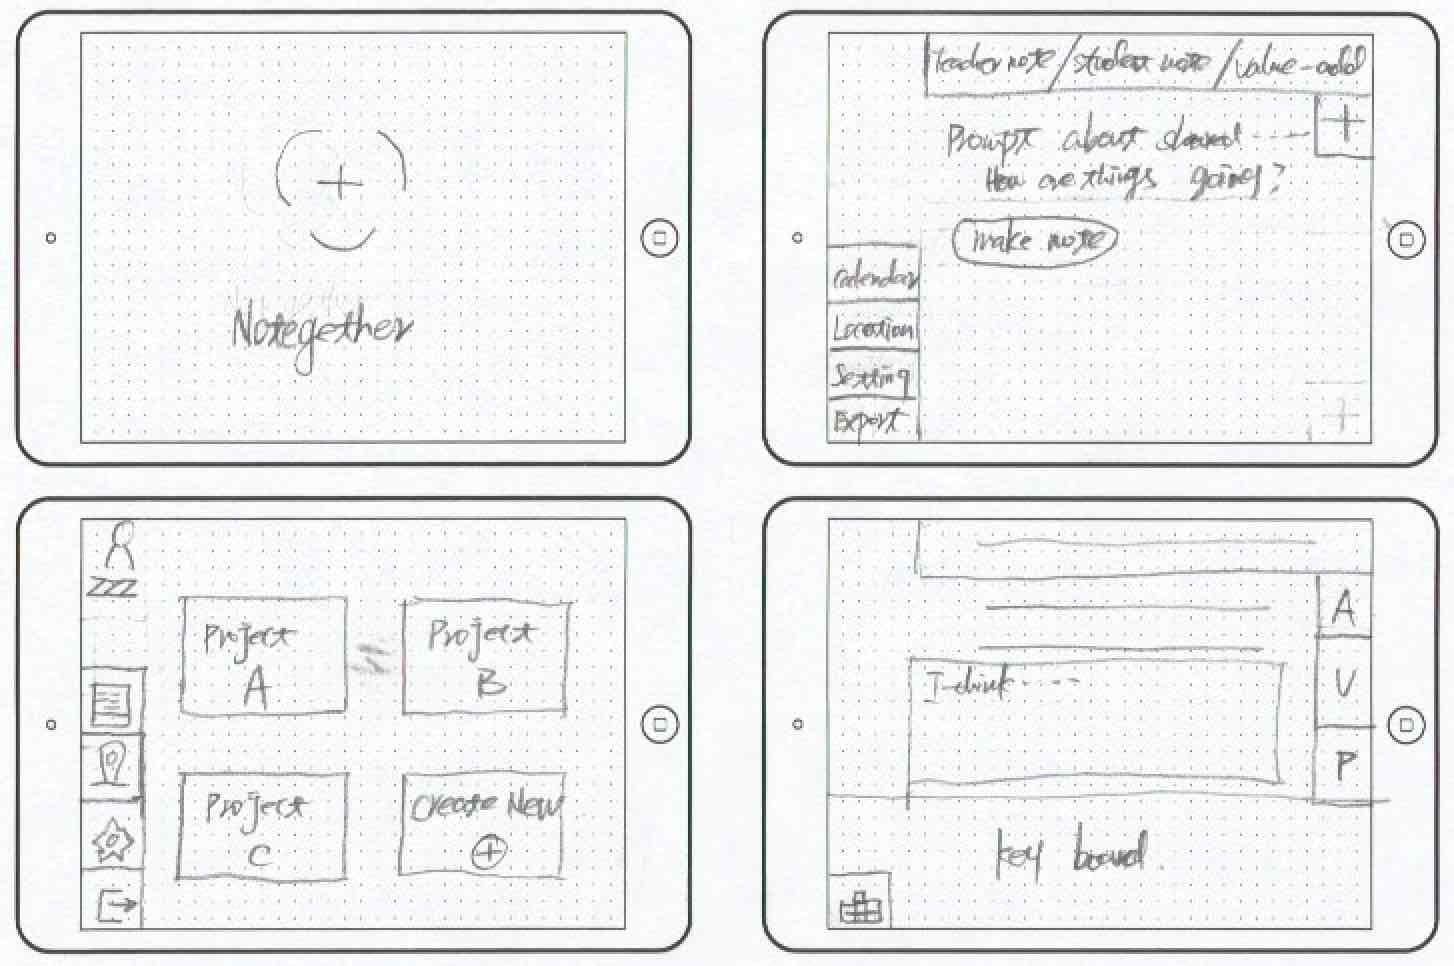 Notegether
Teacher note / student note / value-add
+
Prompt about shared ----
How are things going?
make note
Calendar
Location
Setting
Export
zzz
Project
A
Project
B
Project
C
Create New
+
A
V
P
I think ----
key board